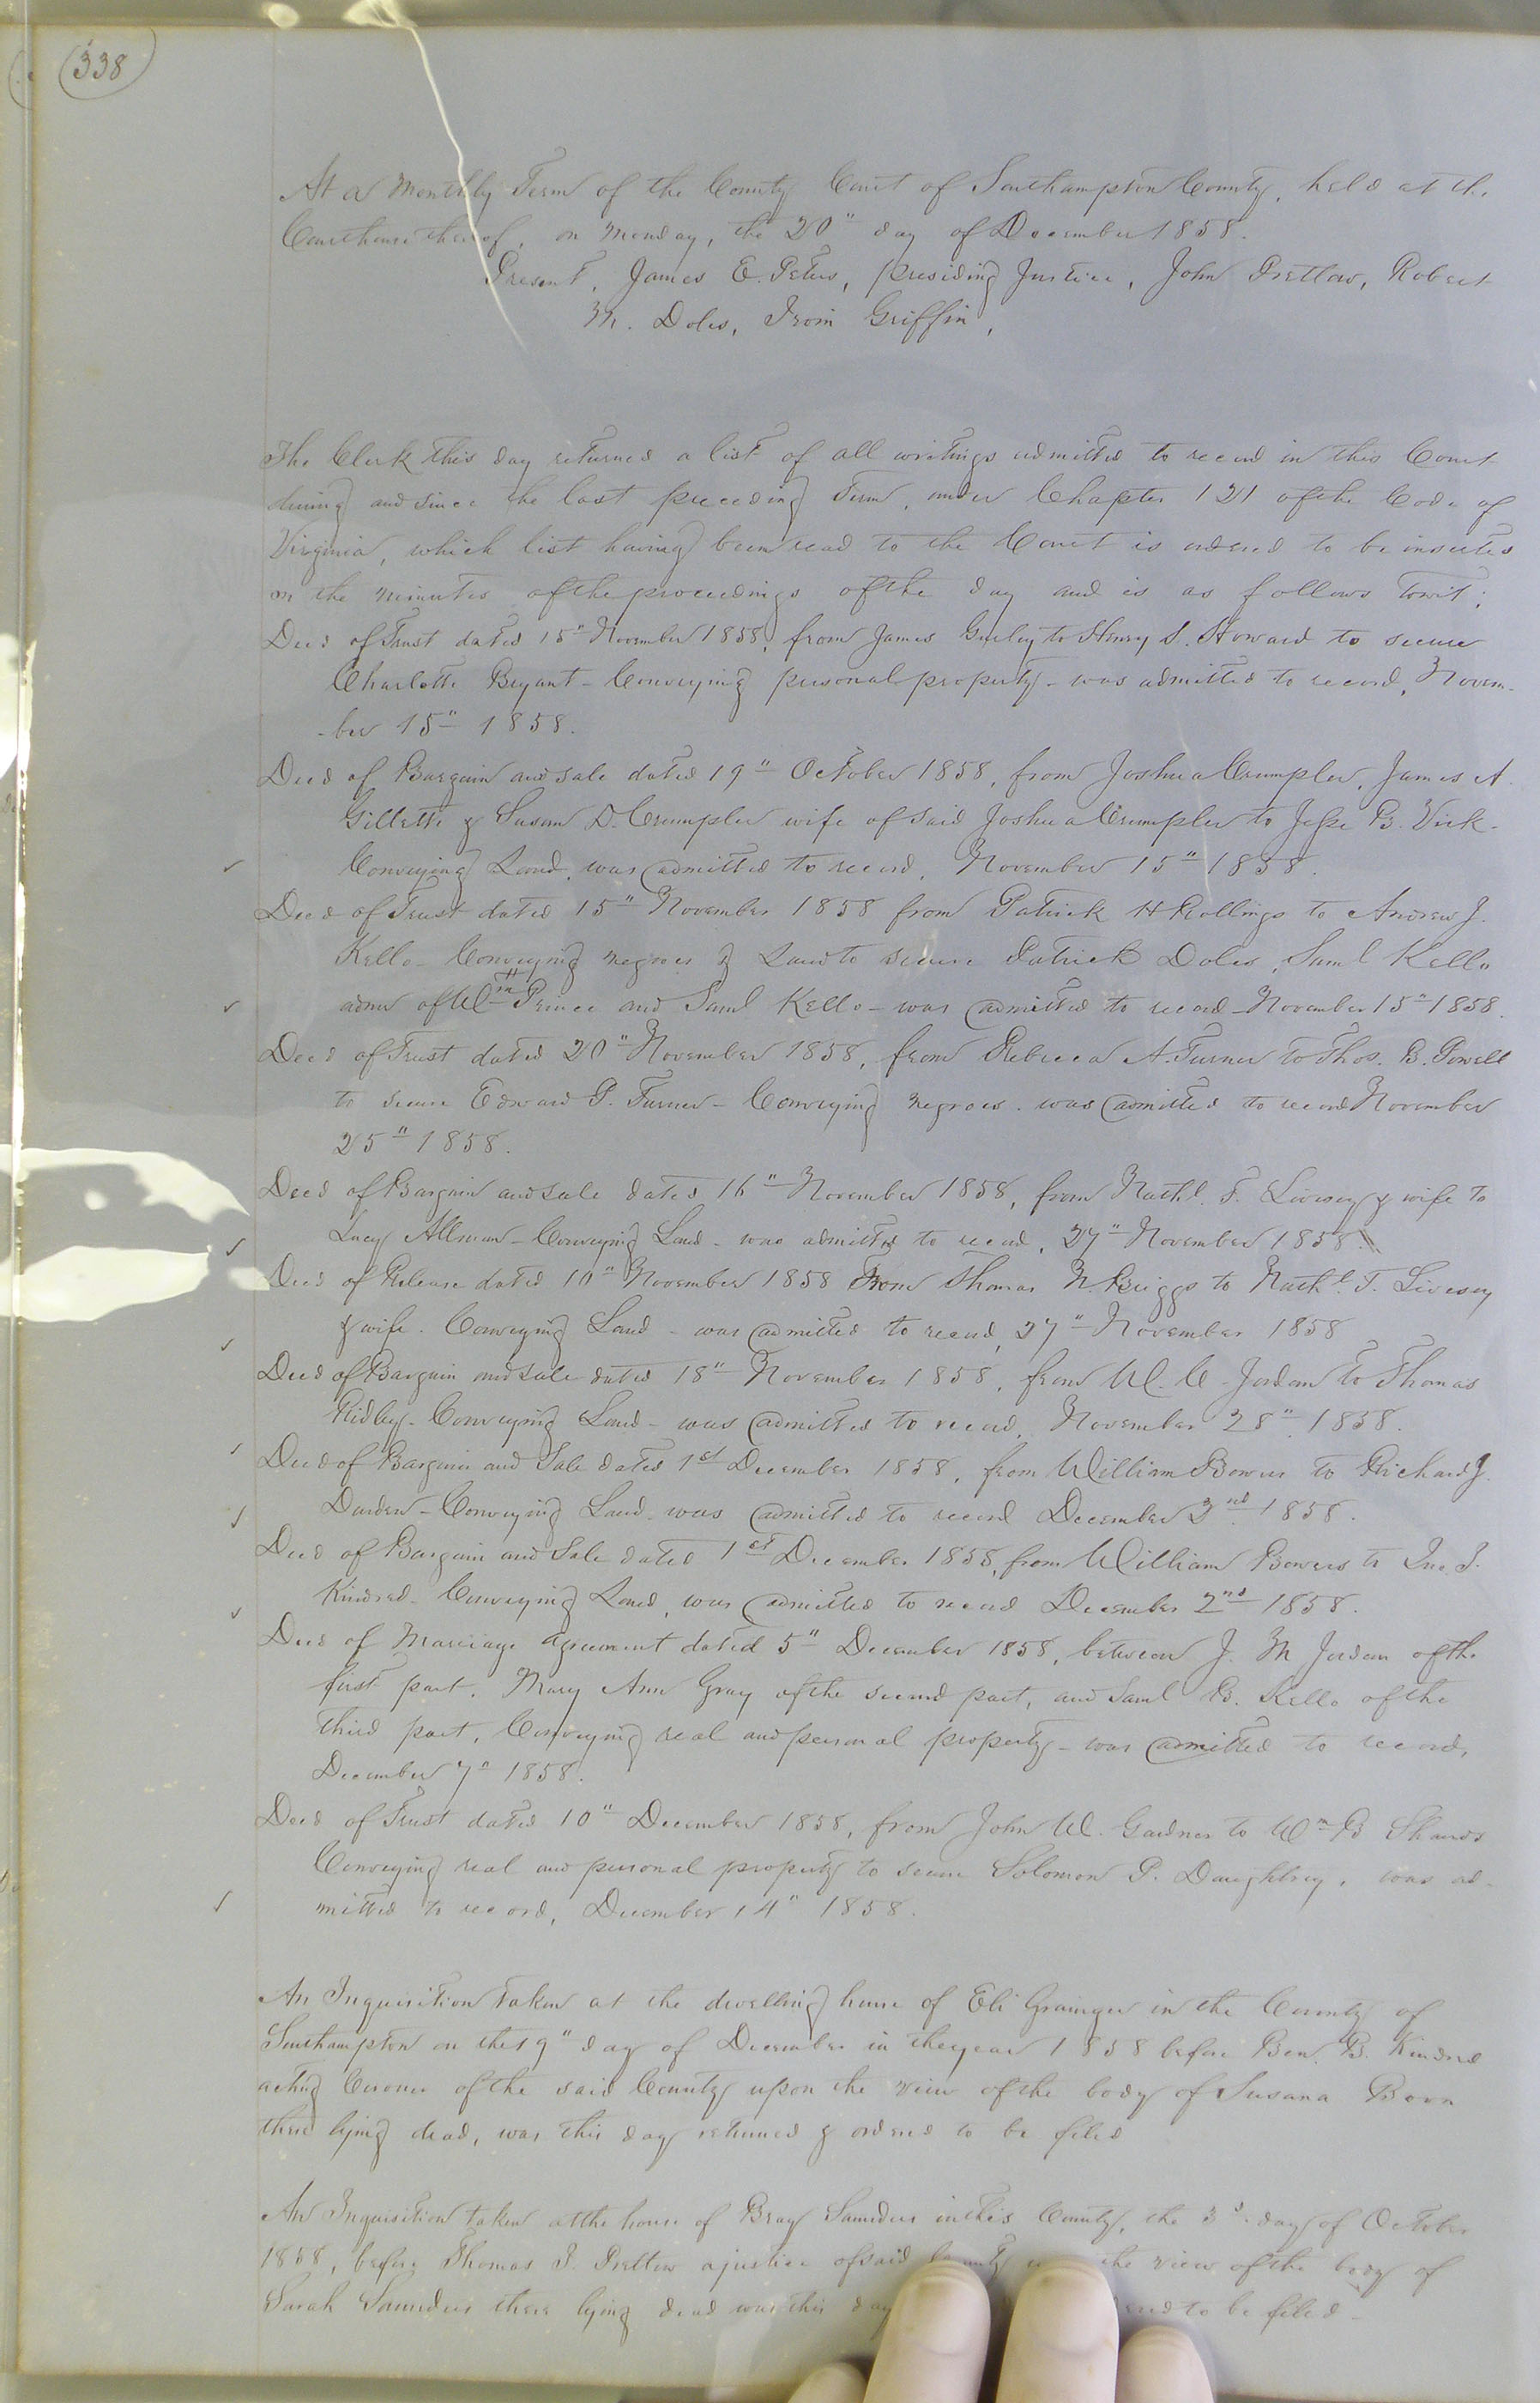 338
At a Monthly Term of the County Court of Southampton County, held at the
Courthouse thereof, on Monday, the 20" day of December 1858.
Present, James E. Peters, presiding Justice, John Pretlow, Robert
M. Doles, Irvin Griffin,
The Clerk this day returned a list of all writings admitted to record in this Court
during and since the last preceeding Term, under Chapter 121 of the Code of
Virginia, which list having been read to the Court is ordered to be inserted
on the minutes of the proceedings of the day and is as follows Towit;
Deed of Trust dated 15" November 1858, from James Gurley to Henry S. Howard to secure
Charlotte Bryant - Conveying personal property - was admitted to record, Novem-
-ber 15" 1858.
Deed of Bargain and sale dated 19" October 1858, from Joshua Crumpler, James A.
Gillette & Susan D. Crumpler wife of said Joshua Crumpler to Jesse B. Vick -
Conveying Land, was admitted to record, November 15" 1858.
Deed of Trust dated 15" November 1858 from Patrick H Rollings to Andrew J.
Kello - Conveying negroes & Land to secure Patrick Doles, Saml Kello
admr of Wm H Prince and Saml Kello - was admitted to record - November 15" 1858.
Deed of Trust dated 20" November 1858, from Rebecca A. Turner to Thos. B. Powell
to secure Edward P. Turner - Conveying negroes. was admitted to record November
25" 1858.
Deed of Bargain and sale dated 16" November 1858, from Nathl. T. Livesey & wife to
Lucy Allman - Conveying Land - was admitted to record, 27" November 1858.
Deed of Release dated 10" November 1858 From Thomas N. Briggs to Nathl. T. Livesey
& wife. Conveying Land - was admitted to record, 27" November 1858
Deed of Bargain and sale dated 18" November 1858, from W. C. Jordan to Thomas
Ridley - Conveying Land - was admitted to record, November 28" 1858.
Deed of Bargain and Sale dated 1st December 1858, from William Bowers to Richard J.
Darden - Conveying Land - was admitted to record December 2nd 1858.
Deed of Bargain and Sale dated 1st December 1858, from William Bowers to Jno. J.
Kindred - Conveying Land, was admitted to record December 2nd 1858.
Deed of Marriage agreement dated 5" December 1858, between J. M Jordan of the
first part, Mary Ann Gray of the second part, and Saml B. Kello of the
third part, Conveying real and personal property - was admitted to record,
December 7" 1858.
Deed of Trust dated 10" December 1858, from John W. Gardner to Wm B Shands
Conveying real and personal property to secure Solomon P. Daughtrey, was ad-
mitted to record, December 14" 1858.
An Inquisition taken at the dwelling house of Eli Grainger in the County of
Southampton on the 19" day of December in the year 1858 before Ben. B. Kindred
acting Coroner of the said County upon the view of the body of Susana Boon
there lying dead, was this day returned & ordered to be filed
An Inquisition taken at the house of Bray Saunders in this County, the 3d day of October
1858, before Thomas J. Pretlow a justice of said County the view of the body of
Sarah Saunders there lying dead was this day to be filed -